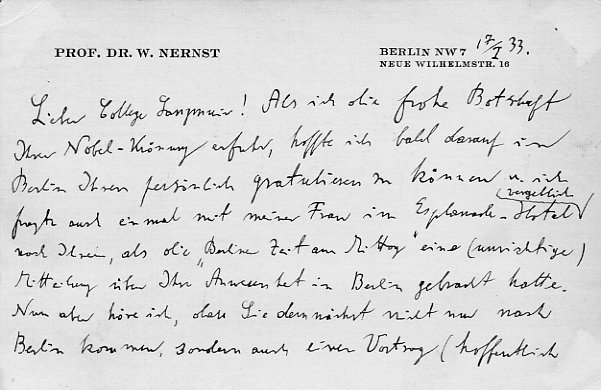 PROF. DR. W. NERNST
BERLIN NW7 17/I 33.
NEUE WILHELMSTR. 16
Lieber College Langmuir! Als ich die frohe Botschaft
Ihrer Nobel-Krönung erfuhr, hoffte ich bald darauf in
Berlin Ihnen persönlich gratulieren zu können u. ich
vergeblich
fragte auch einmal mit meiner Frau im Esplanade-Hotel
nach Ihnen, als die „Berliner Zeit am Mittag" eine (unrichtige)
Mitteilung über Ihre Anwesenheit in Berlin gebracht hatte.
Nun aber höre ich, dass Sie demnächst nicht nur nach
Berlin kommen, sondern auch einen Vortrag (hoffentlich